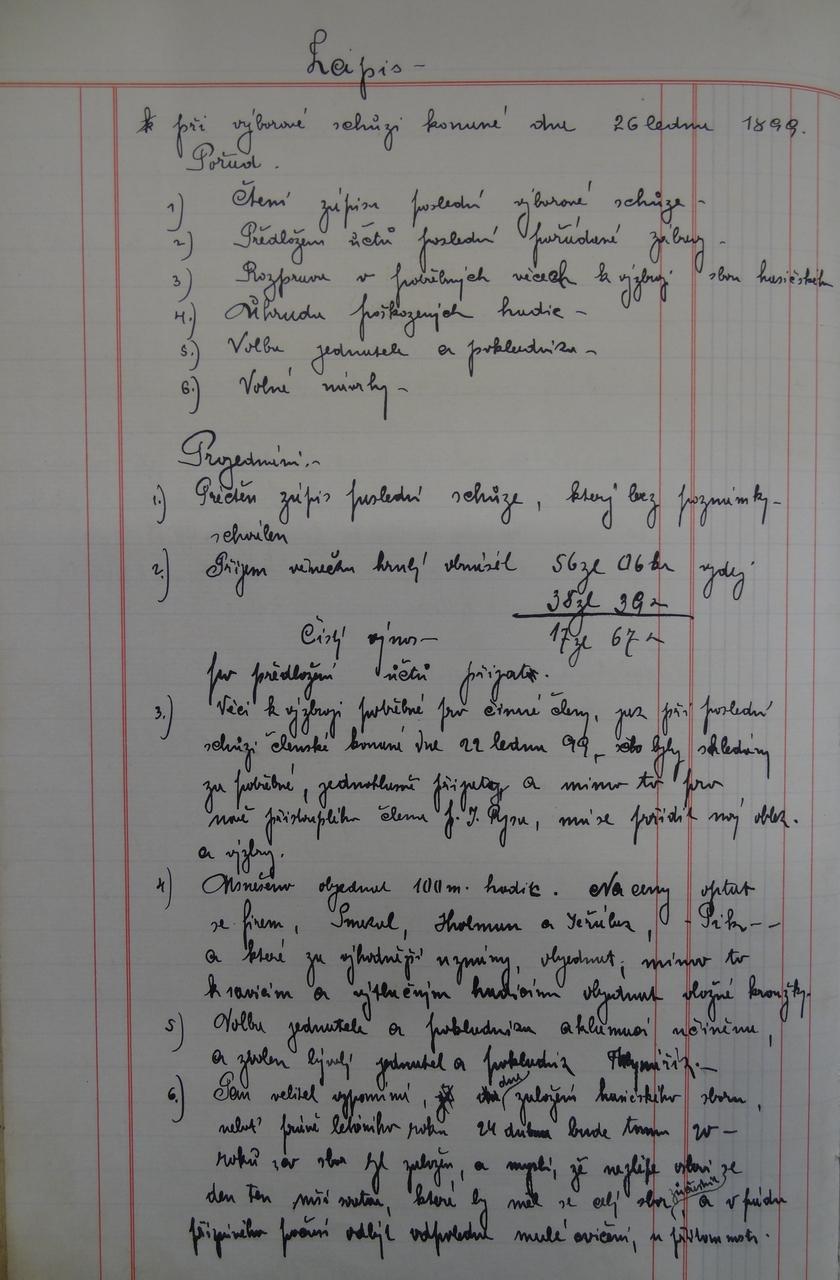 Zápis –
při výborové schůzi konané dne 26 ledna 1899.
Pořad.
1) Čtení zápisu poslední výborové schůze –
2) Předložení účtů poslední pořádané zábavy –
3) Rozprava v potřebných věcech k výzbroji sboru hasičského
4.) Úhrada poškozených hadic –
5.) Volba jednatele a pokladníka –
6.) Volné návrhy –
Projednání. –
1.) Přečten zápis poslední schůze, který bez poznámky –
schválen
2.) Příjem věnečku hrubý obnášel 56 zl 06 kr vydej
38 zl 39 "
Čistý výnos – 17 zl 67 "
po předložení účtů přijato.
3.) Věci k výzbroji potřebné pro činné členy, jak při poslední
schůzi členské konané dne 22 ledna 99, byly shledány
za potřebné, jednohlasně přijaty a mimo to pro
nově přistouplého člena p. J. Rysa, má se pořídit nový oblek
a výzbroj.
4) Usnešeno objednat 100 m. hadic. Na ceny optat
se firem, Smekal, Holman a Jeřábek, – –
a které za výhodnější uznány, objednat; mimo to
k savicím a výtlačným hadicím objednat vložné kroužky.
5) Volba jednatele a pokladníka aklamací učiněna,
a zvolen bývalý jednatel a pokladník
6.) Pan velitel vzpomíná, dne založení hasičského sboru,
neboť právě letošního roku 24 dubna bude tomu 20 –
roků co sbor byl založen, a myslí, že nejlépe oslaví se
den ten mší svatou, které by měl se celý sbor súčastnit, a v pádu
příznivého počasí odbýt odpoledne malé cvičení, u přítomnosti.